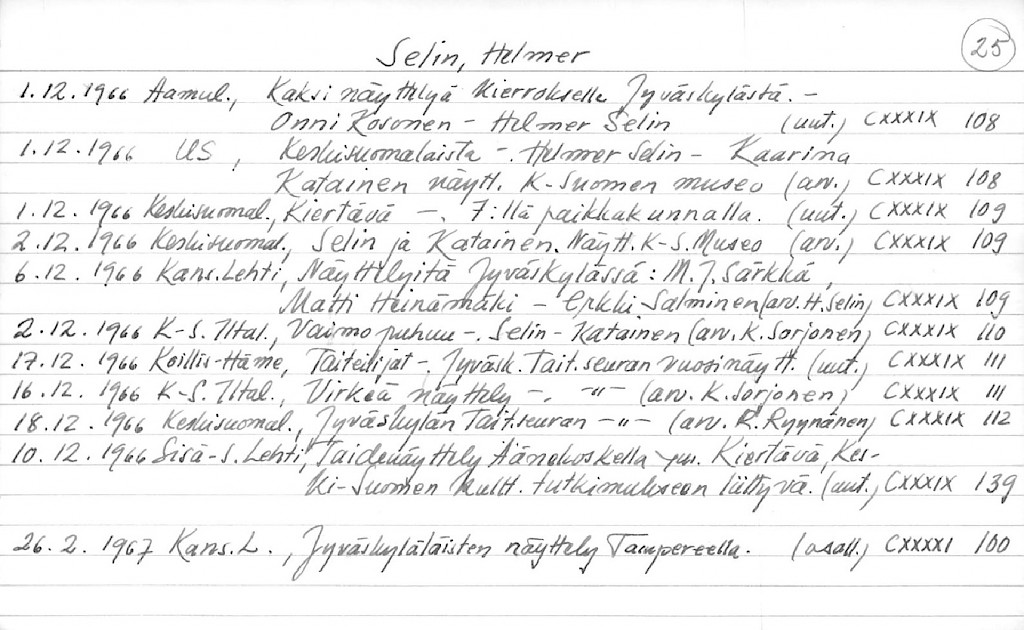 25
Selin, Helmer
1.12.1966 Aamul., Kaksi näyttelyä kierroksella Jyväskylästä. –
Onni Kosonen – Helmer Selin (uut.) CXXXIX 108
1.12.1966 US, Keskisuomalaista –. Helmer Selin – Kaarina
Katainen näytt. K-Suomen museo (arv.) CXXXIX 108
1.12.1966 Keskisuomal., Kiertävä –. 7:llä paikkakunnalla. (uut.) CXXXIX 109
2.12.1966 Keskisuomal., Selin ja Katainen. Näytt. K-S. Museo (arv.) CXXXIX 109
6.12.1966 Kans.Lehti, Näyttelyitä Jyväskylässä: M.J. Särkkä,
Matti Heinämäki – Erkki Salminen (arv. H. Selin) CXXXIX 109
2.12.1966 K-S. Iltal., Vaimo puhuu –. Selin – Katainen (arv. K. Sorjonen) CXXXIX 110
17.12.1966 Koillis-Häme, Taiteilijat –. Jyväsk. Tait.seuran vuosinäytt. (uut.) CXXXIX 111
16.12.1966 K-S. Iltal., Virkeä näyttely –. –"– (arv. K. Sorjonen) CXXXIX 111
18.12.1966 Keskisuomal., Jyväskylän Tait.seuran –"– (arv. R. Ryynänen) CXXXIX 112
10.12.1966 Sisä-S. Lehti, Taidenäyttely Äänekoskella Kiertävä, Kes-
ki-Suomen kultt. tutkimukseen liittyvä. (uut.) CXXXIX 139
26.2.1967 Kans.L., Jyväskyläläisten näyttely Tampereella. (osall.) CXXXXI 100